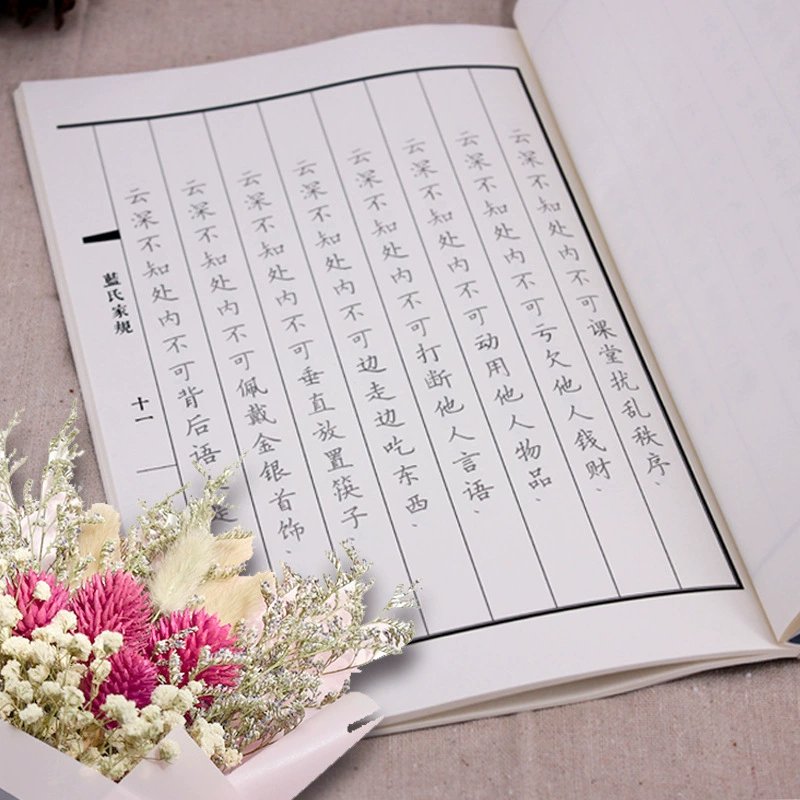 云深不知处内不可课堂扰乱秩序、
云深不知处内不可亏欠他人钱财、
云深不知处内不可动用他人物品、
云深不知处内不可打断他人言语、
云深不知处内不可边走边吃东西、
云深不知处内不可垂直放置筷子、
云深不知处内不可佩戴金银首饰、
云深不知处内不可背后语
藍氏家規
十一